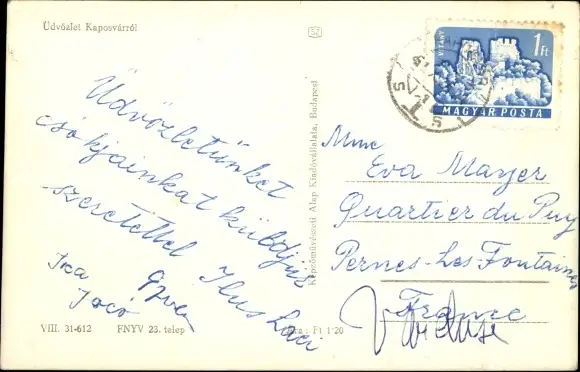 Üdvözlet Kaposvárról
SZ
VITÁNY
1Ft
MAGYAR POSTA
Üdvözletünket
csókjainkat küldjük
szeretettel Ilus Laci
Ica
Jocó
VIII. 31-612 FNYV 23. telep
Ára: Ft 1·20
Képzőművészeti Alap Kiadóvállalata, Budapest
Mme
Eva Mayer
Quartier du Puy
Pernes-Les Fontaines
France
Vaucluse